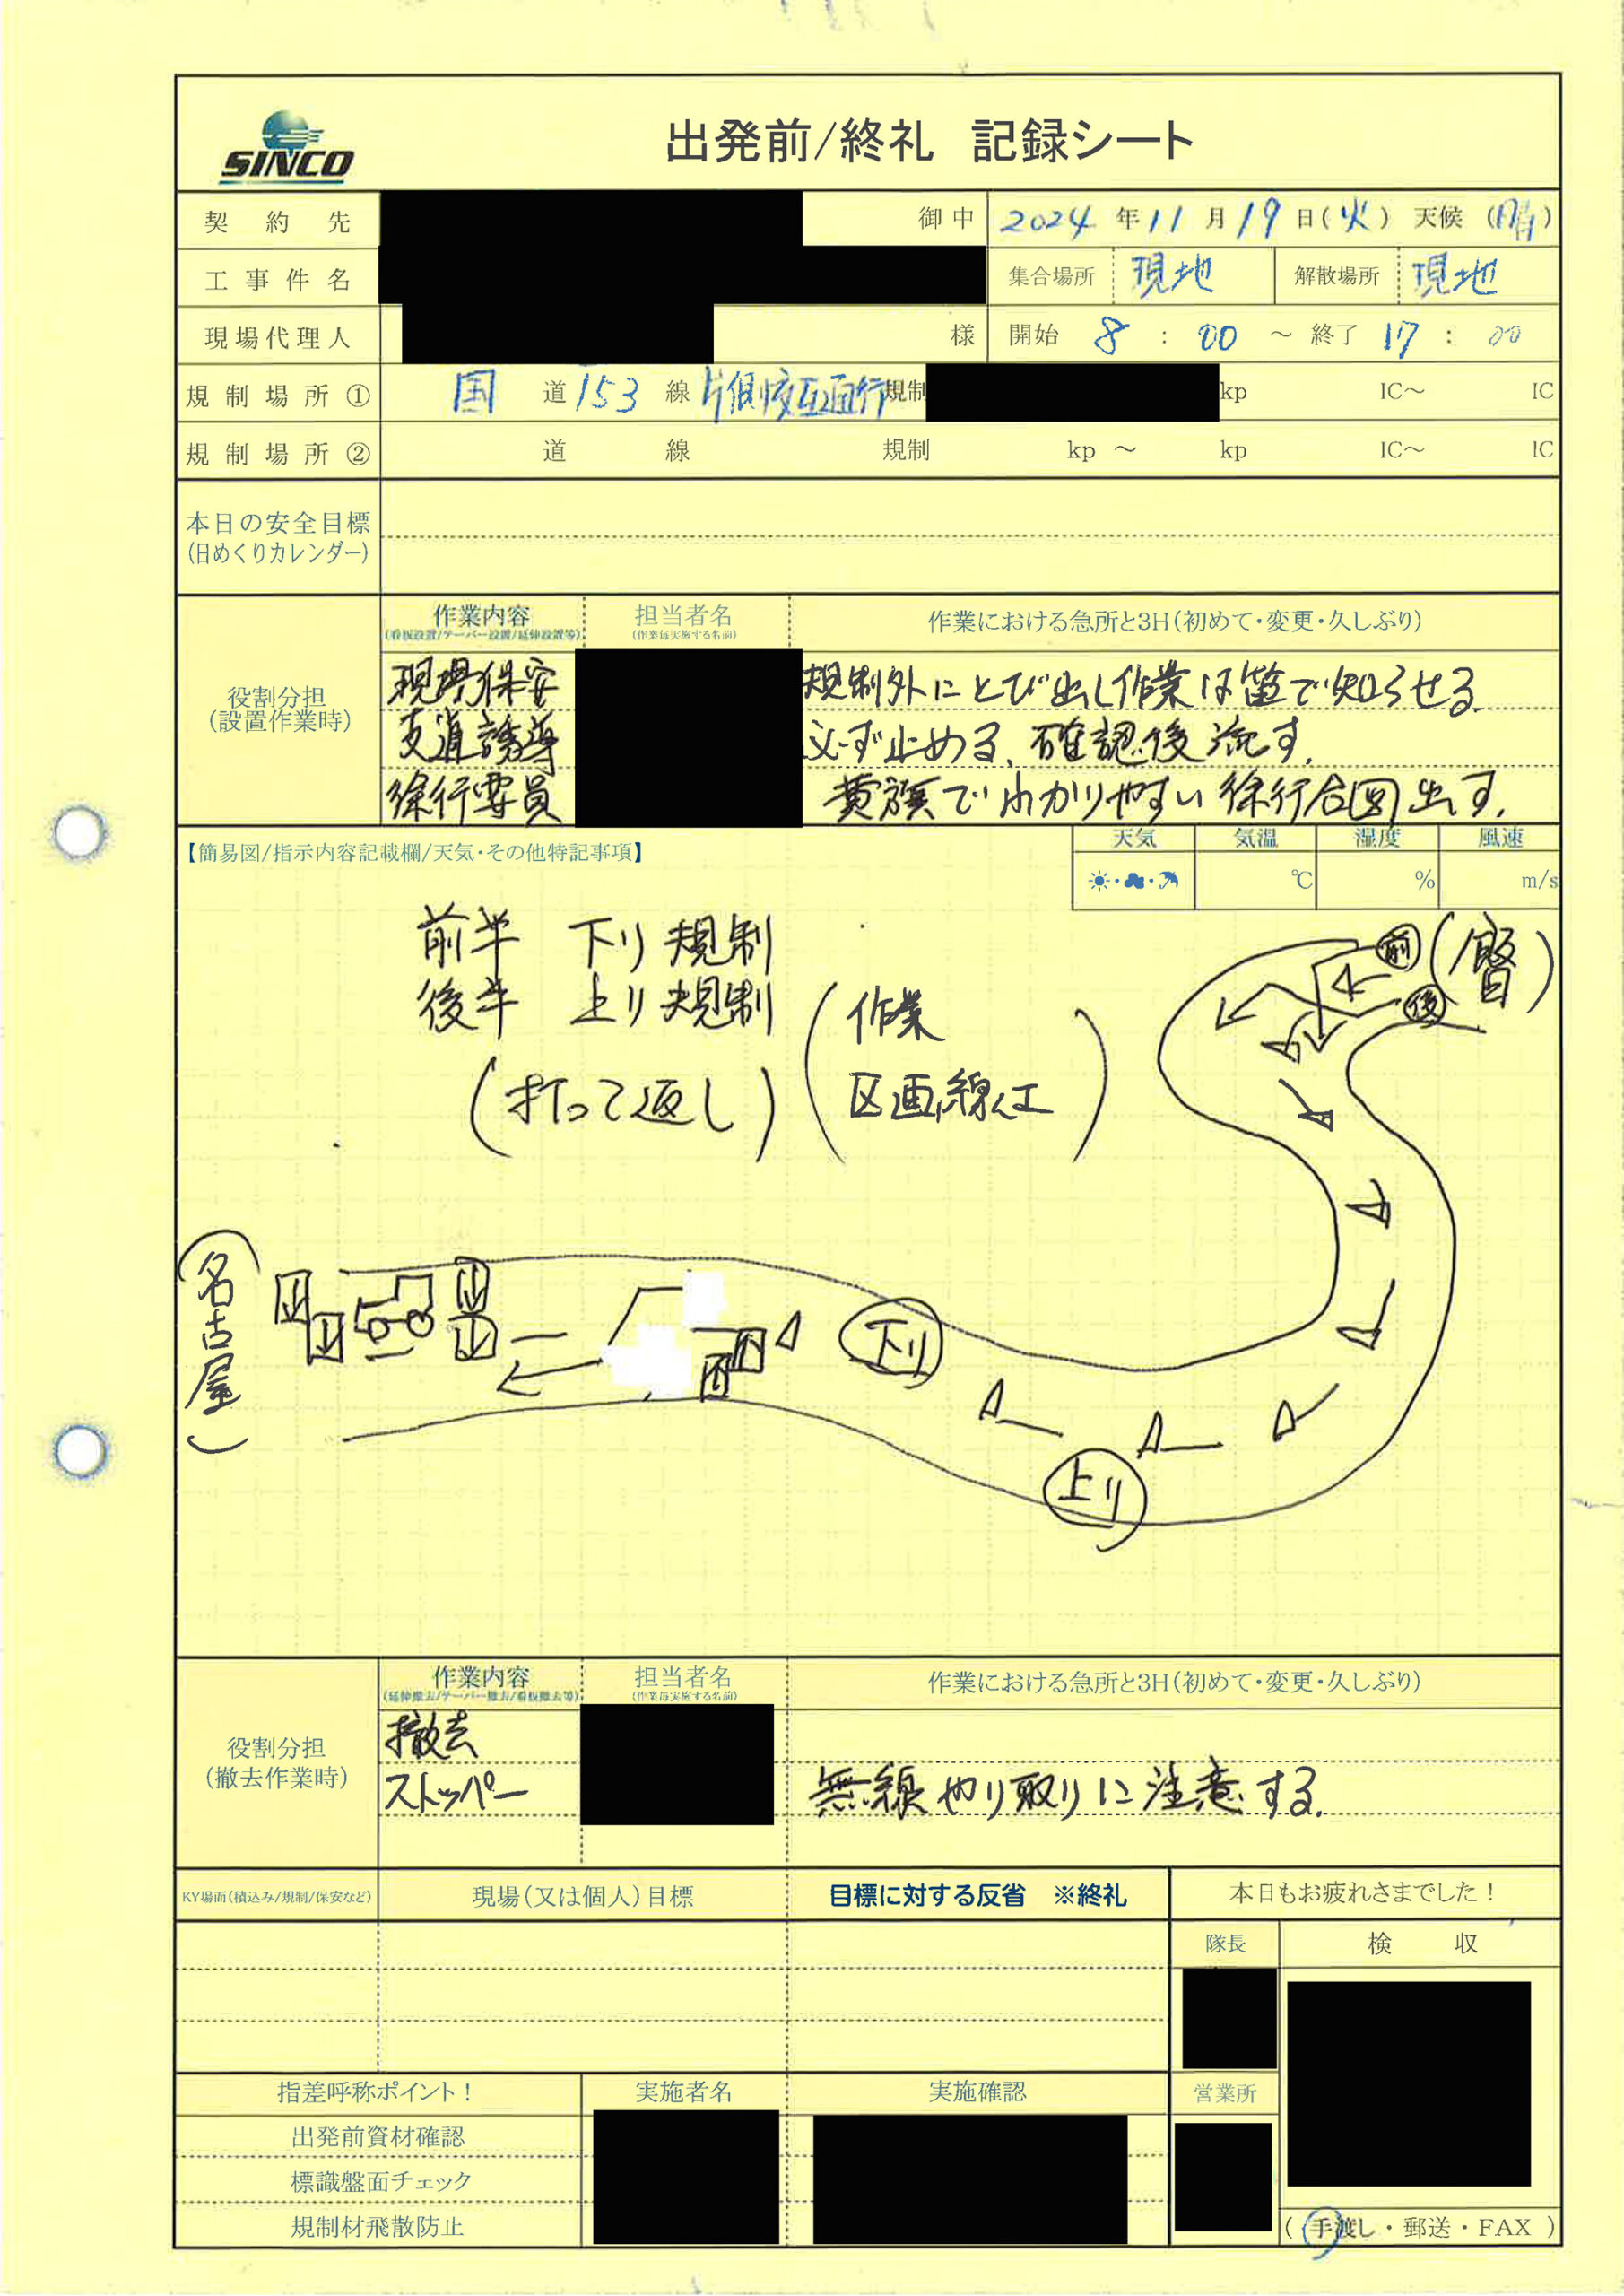 SINCO
出発前/終礼 記録シート
契約先 御中 2024年11月19日(火) 天候(晴)
工事件名 集合場所 現地 解散場所 現地
現場代理人 様 開始 8:00 ~ 終了 17:00
規制場所① 国道153線 片側交互通行規制 kp IC~ IC
規制場所② 道 線 規制 kp ~ kp IC~ IC
本日の安全目標
(日めくりカレンダー)
作業内容 担当者名 作業における急所と3H(初めて・変更・久しぶり)
(看板設置/テーパー設置/延伸設置等) (作業毎実施する名前)
役割分担
(設置作業時)
現場保安 規制外にとび出し作業は笛で知らせる.
支道誘導 必ず止める、確認後流す.
徐行要員 黄旗でわかりやすい徐行合図出す.
【簡易図/指示内容記載欄/天気・その他特記事項】
天気 気温 湿度 風速
℃ % m/s
前半 下り規制
後半 上り規制
(打って返し)
(作業
区画線工)
前
後
名古屋
下り
上り
作業内容 担当者名 作業における急所と3H(初めて・変更・久しぶり)
(延伸撤去/テーパー撤去/看板撤去等) (作業毎実施する名前)
役割分担
(撤去作業時)
撤去
ストッパー 無線やり取りに注意する.
KY場面(積込み/規制/保安など) 現場(又は個人)目標 目標に対する反省 ※終礼 本日もお疲れさまでした!
隊長 検収
指差呼称ポイント! 実施者名 実施確認 営業所
出発前資材確認
標識盤面チェック
規制材飛散防止
(手渡し・郵送・FAX)